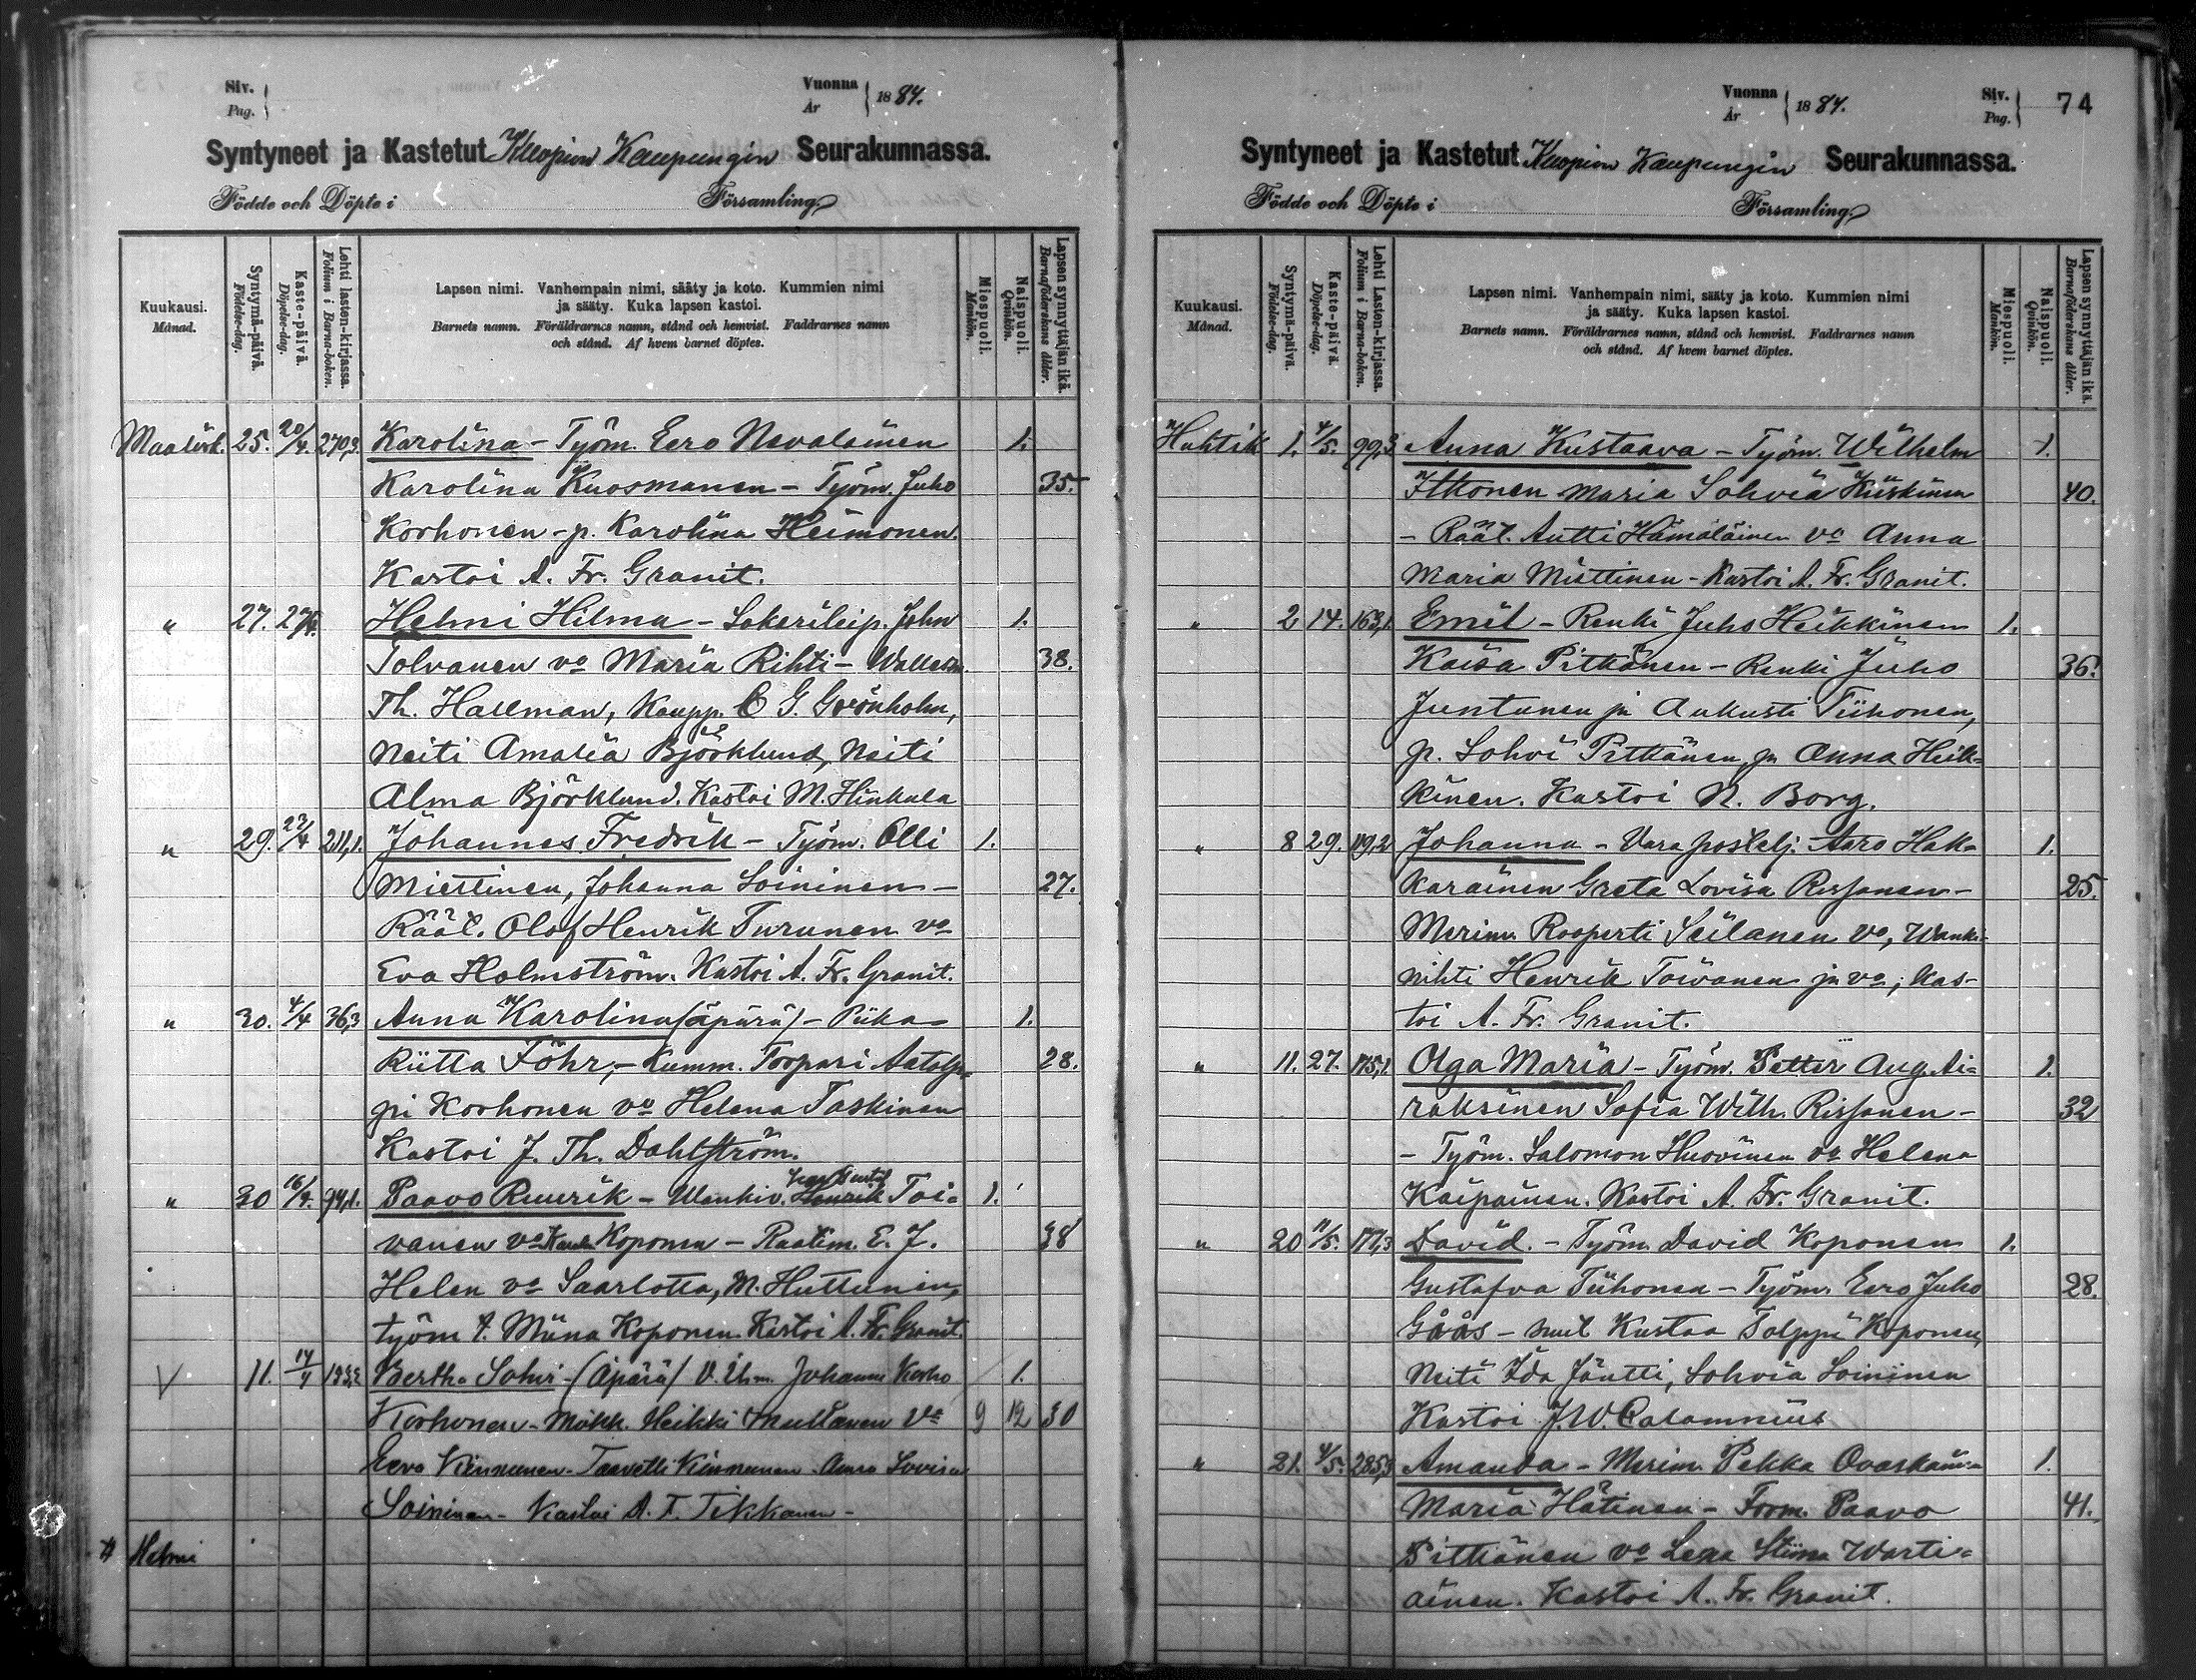 Siv. Vuonna
Pag. År 1884.
Syntyneet ja Kastetut Kuopion Kaupungin Seurakunnassa.
Födde och Döpte i Församling
Kuukausi. Månad.
Syntymä-päivä. Födelse-dag.
Kaste-päivä. Döpelse-dag.
Lehti lasten-kirjassa. Folium i Barna-boken.
Lapsen nimi. Vanhempain nimi, sääty ja koto. Kummien nimi
ja sääty. Kuka lapsen kastoi.
Barnets namn. Föräldrarnes namn, stånd och hemvist. Faddrarnes namn
och stånd. Af hvem barnet döptes.
Miespuoli. Mankön.
Naispuoli. Qvinkön.
Lapsen synnyttäjän ikä. Barnaföderskans ålder.
Maalisk. 25. 20/4. 270,3. Karolina - Työm. Eero Nevalainen 1.
Karolina Kuosmanen - Työm. Juho 35.
Korhonen - p. Karolina Heimonen.
Kastoi A. Fr. Granit.
" 27. 27/4. Helmi Hilma - Sokerileip. John 1.
Tolvanen vo Maria Rihti - 38.
Th. Hallman, Kaupp. C G. Grönholm,
Neiti Amalia Björklund, Neiti
Alma Björklund. Kastoi M. Hinkula
" 29. 23/4 211,1. Johannes Fredrik - Työm. Olli 1.
Miettinen, Johanna Soininen - 27.
Räät. Olof Henrik Turunen vo
Eva Holmström. Kastoi A. Fr. Granit.
" 30. 4/4 36,3 Anna Karolina (äpärä) - Piika 1.
Riitta Föhr, - Kumm. Torpari 28.
pi Korhonen vo Helena Taskinen
Kastoi J. Th. Dahlström.
" 30 16/4. 94,1. Paavo Ruurik - Wankiv. Henrik Toi= 1.
vanen vo Koponen - Raatim. E. J. 38
Helen vo Saarlotta, M. Huttunen,
työm t. Miina Koponen. Kastoi A. Fr. Granit.
V 11. 14/4 Bertha Sohvi - (Äpärä) Johanna Korho 1.
Korhonen - Mökk. Heikki vo 9 12 30
Eeva Kinnunen - Taavetti Kinnunen - Anna Lovisa
Soininen - Kastoi A. F. Tikkanen -
# Helmi
Vuonna Siv.
År 1884. Pag. 74
Syntyneet ja Kastetut Kuopion Kaupungin Seurakunnassa.
Födde och Döpte i Församling
Kuukausi. Månad.
Syntymä-päivä. Födelse-dag.
Kaste-päivä. Döpelse-dag.
Lehti Lasten-kirjassa. Folium i Barna-boken.
Lapsen nimi. Vanhempain nimi, sääty ja koto. Kummien nimi
ja sääty. Kuka lapsen kastoi.
Barnets namn. Föräldrarnes namn, stånd och hemvist. Faddrarnes namn
och stånd. Af hvem barnet döptes.
Miespuoli. Mankön.
Naispuoli. Qvinkön.
Lapsen synnyttäjän ikä. Barnaföderskans ålder.
Huhtik 1. 4/5. 99,3 Anna Kustaava - Työm. Wilhelm 1.
Itkonen Maria Sohvia Kiiskinen 40.
- Räät. Antti Hämäläinen vo Anna
Maria Miettinen - Kastoi A. Fr. Granit.
" 2 14. 163,1. Emil - Renki Juho Heikkinen 1.
Kaisa Pitkänen - Renki Juho 36.
Juntunen ja Aukusti Tiihonen,
p. Sohvi Pitkänen, ja Anna Heik=
kinen. Kastoi N. Borg.
" 8 29. 119,2 Johanna - Vara postelj. Aaro Hak= 1.
karainen Greta Lovisa Rissanen - 25.
Merim. Rooperti Seilanen vo, Wanki=
nihti Henrik Toivanen ja vo; Kas-
toi A. Fr. Granit.
" 11. 27. 175,1. Olga Maria - Työm. Petter Aug. Ai= 1.
raksinen Sofia Wilh. Rissanen - 32
- Työm. Salomon Huovinen vo Helena
Kaipainen. Kastoi A. Fr. Granit.
" 20 11/5. 177,3 David. - Työm. David Koponen 1.
Gustafva Tiihonen - Työm. Eero Juho 28.
Gåås - suut Kustaa Tolppi Koponen,
Neiti Ida Jäntti, Sohvia Soininen
Kastoi J.W. Calamnius
" 21. 4/5. 285,3 Amanda - Merim. Pekka Ovaskain= 1.
Maria Hätinen - Form. Paavo 41.
Pitkänen vo Lena Stiina Warti=
ainen. Kastoi A. Fr. Granit.